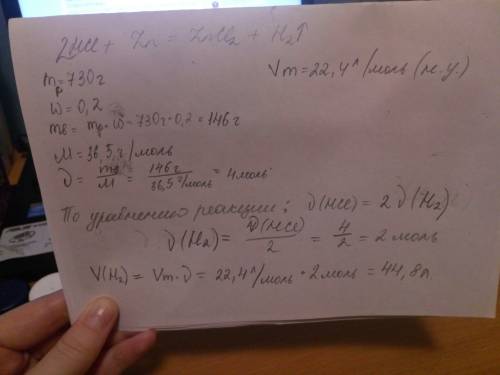 2HCl + Zn = ZnCl₂ + H₂↑
Vm = 22,4 л/моль (н.у.)
mр = 730 г
ω = 0,2
mв = mр · ω = 730 г · 0,2 = 146 г
M = 36,5 г/моль
ν = mв/M = 146 г/36,5 г/моль = 4 моль
По уравнению реакции: ν(HCl) = 2 ν(H₂)
ν(H₂) = ν(HCl)/2 = 4/2 = 2 моль
V(H₂) = Vm · ν = 22,4 л/моль · 2 моль = 44,8 л.